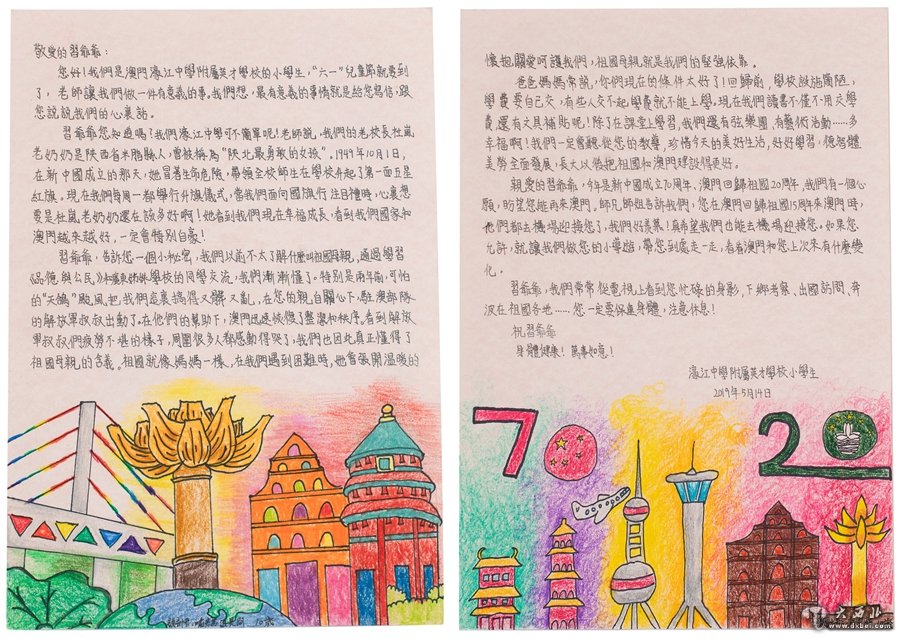 敬愛的習爺爺：
您好！我們是澳門濠江中學附屬英才學校的小學生，“六一”兒童節就要到
了，老師讓我們做一件有意義的事。我們想，最有意義的事情就是給您寫信，跟
您說說我們的心裏話。
習爺爺您知道嗎？我們濠江中學可不簡單呢！老師說，我們的老校長杜嵐
老奶奶是陝西省米脂縣人，曾被稱為“陝北最勇敢的女孩”。1949年10月1日，
在新中國成立的那天，她冒著生命危險，帶領全校師生在學校升起了第一面五星
紅旗。現在我們每周一都舉行升旗儀式，當我們面向國旗行注目禮時，心裏想
要是杜嵐老奶奶還在該多好啊！她看到我們現在幸福成長，看到我們國家和
澳門越來越好，一定會特別自豪！
習爺爺，告訴您一個小秘密，我們以前不太了解什麼叫祖國母親，通過學習
《品德與公民》和廣東姊妹學校的同學交流，我們漸漸懂了。特別是兩年前，可怕
的“天鴿”颱風把我們家裏搞得又髒又亂，在您的親自關心下，駐澳部隊
的解放軍叔叔出動了。在他們的幫助下，澳門迅速恢復了整潔和秩序。看到解放
軍叔叔們疲勞不堪的樣子，周圍很多人都感動得哭了，我們也因此真正懂得了
祖國母親的含義。祖國就像媽媽一樣，在我們遇到困難時，她會張開溫暖的
懷抱關愛呵護我們，祖國母親就是我們的堅強依靠。
爸爸媽媽常說，你們現在的條件太好了！回歸前，學校設施簡陋，
學費要自己交，有些人交不起學費就不能上學。現在我們讀書不僅不用交學
費還有文具補貼呢！除了在課堂上學習，我們還有弦樂團，有藝術活動……多
幸福啊！我們一定會聽從您的教導，珍惜今天的美好生活，好好學習，德智體
美勞全面發展，長大以後把祖國和澳門建設得更好。
親愛的習爺爺，今年是新中國成立70周年、澳門回歸祖國20周年，我們有一個心
願，盼望您能再來澳門。師兄師姐告訴我們，您在澳門回歸祖國15周年來澳門時，
他們都去機場迎接您了，我們好羨慕！真希望我們也能去機場迎接您。如果您
允許，就讓我們做您的小導遊，帶您到處走一走，看看澳門和您上次來有什麼變
化。
習爺爺，我們常常從電視上看到您忙碌的身影，下鄉考察、出國訪問、奔
波在祖國各地……您一定要保重身體，注意休息！
祝習爺爺
身體健康！萬事如意！
濠江中學附屬英才學校小學生
2019年5月14日
70
20
大西北
www.dxbei.com